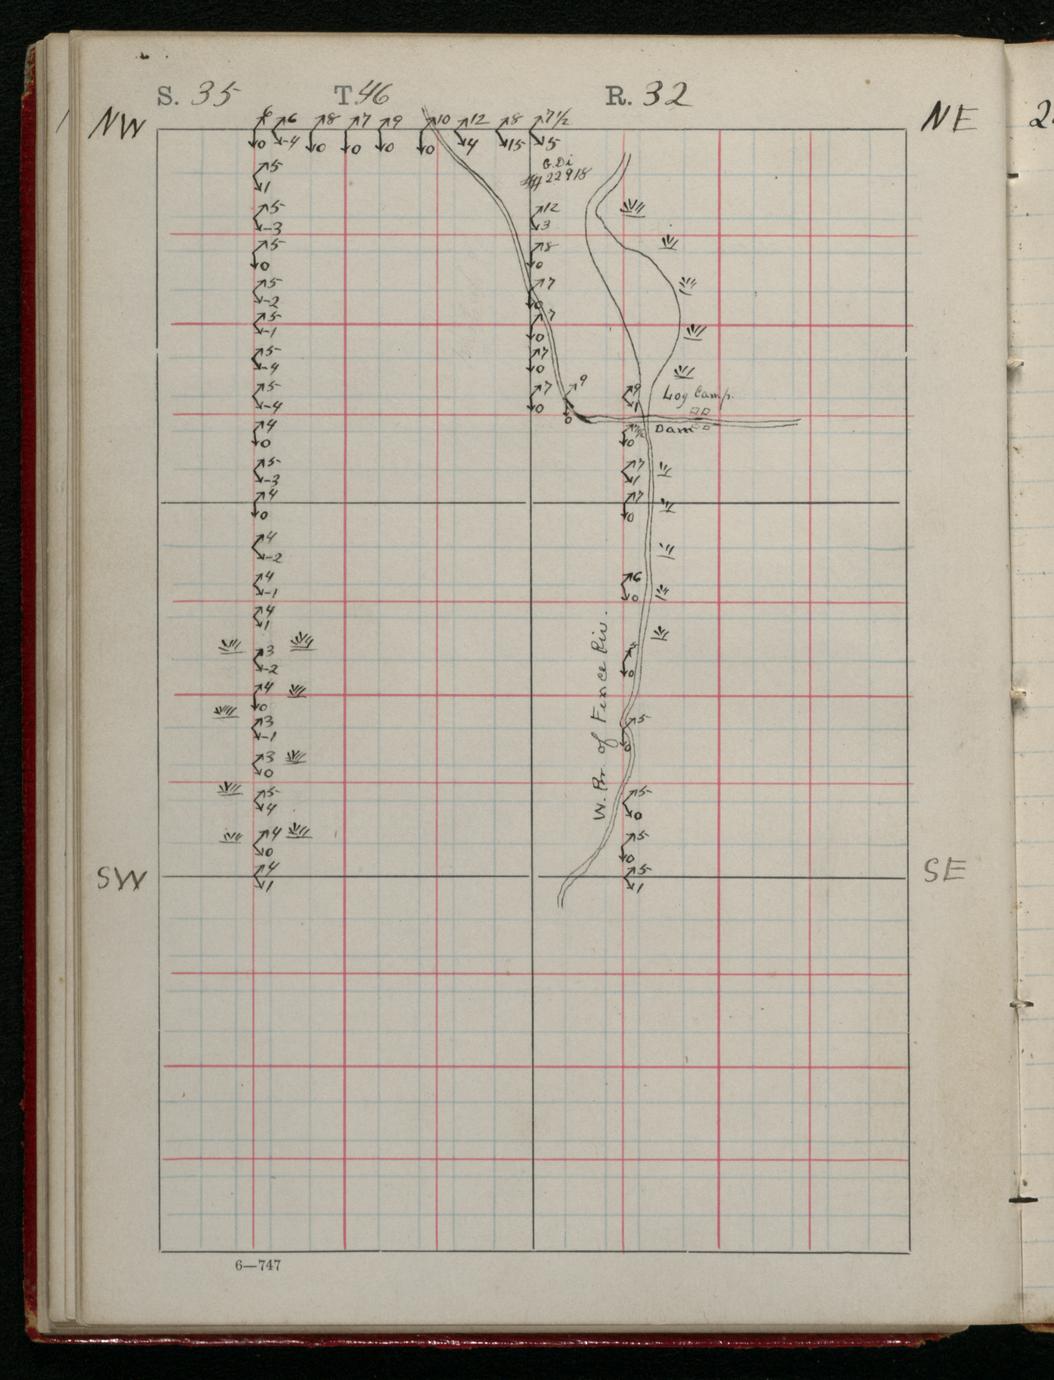 S. 35 T. 46 R. 32
NW NE
6 6 8 7 9 10 12 8 7 1/2
0 -4 0 0 0 0 4 15 5
G. Di
22918
5
1
5
-3
5
0
5
-2
5
-1
5
-4
5
-4
4
0
5
-3
4
0
4
-2
4
-1
4
1
3
-2
4
0
3
-1
3
0
5
4
4
0
4
1
12
3
8
0
7
0
7
0
7
0
7
0
9
0
9
1
Log Camp.
Dam
0
7
1
7
0
6
0
0
5
0
5
0
5
0
5
1
W. Br. of Fence Riv.
SW SE
6—747